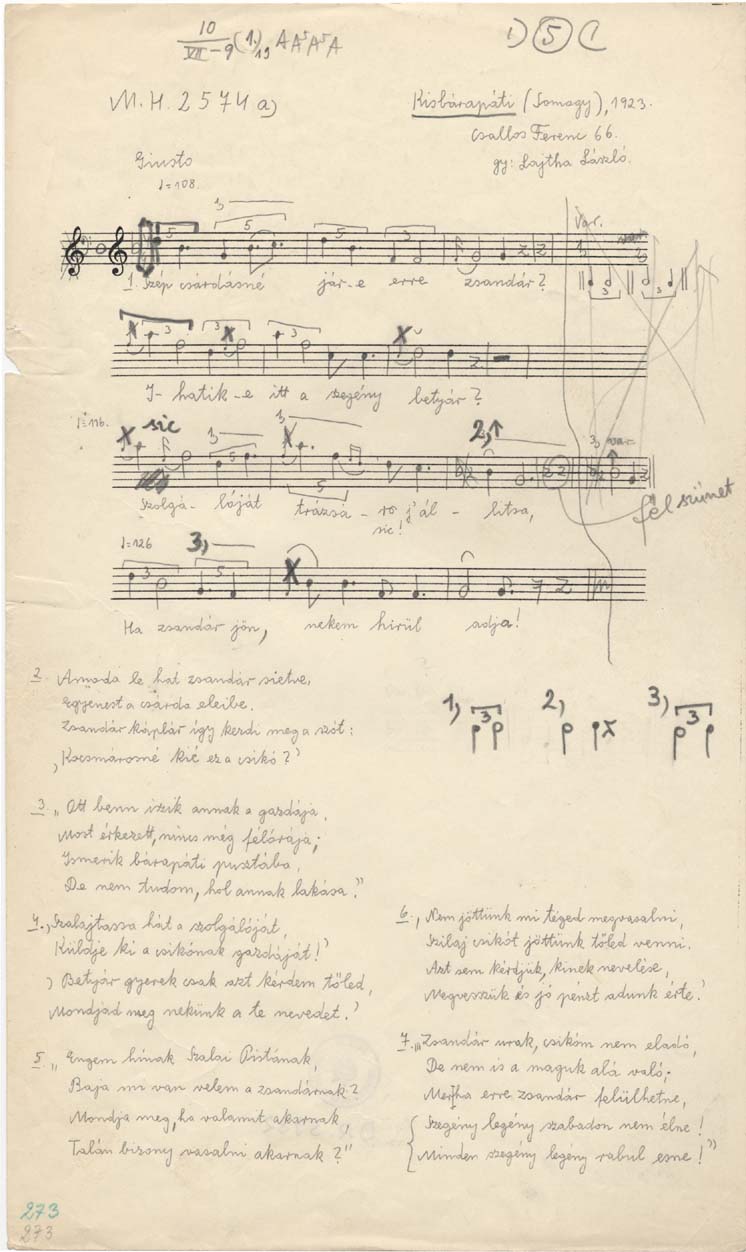 10
VII-9 (1.) 19 AA⁵A⁵A
1) (5) (
M.H. 2574 a)
Kisbárapáti (Somogy), 1923.
Csallos Ferenc 66.
gy: Lajtha László.
Giusto
♩=108.
1 5 5 5 3 Var. 3 3
1. Szép csárdásné jár-e erre zsandár?
3 3 3
I-hatik-e itt a szegény betyár?
♩=116. sic 3 5 1 5 2, 3, var.
Szolgá-lóját trázsá-ra j'ál-litsa,
sic!
fél szünet
♩=126 3 3,
Ha zsandár jön, nekem hirül adja!
1) 3 2) 3) 3
2. Amoda le hat zsandár sietve,
Egyenest a csárda eleibe.
Zsandár káplár így kerdi meg a szót:
„Kocsmárosné kié ez a csikó?”
3. „Ott benn iszik annak a gazdája,
Most érkezett, nincs még félórája;
Ismerik bárapáti pusztába,
De nem tudom, hol annak lakása.”
4. „Szalajtassa hát a szolgálóját,
Küldje ki a csikónak gazdáját!”
„Betyár gyerek csak azt kérdem tőled,
Mondjad meg nekünk a te nevedet.”
5. „Engem hínak Szalai Pistának,
Baja mi van velem a zsandárnak?
Mondja meg, ha valamit akarnak,
Talán bizony vasalni akarnak?”
6. „Nem jöttünk mi téged megvasalni,
Szilaj csikót jöttünk tőled venni.
Azt sem kérdjük, kinek nevelése,
Megvesszük és jó pénzt adunk érte.”
7. „Zsandár urak, csikóm nem eladó,
De nem is a maguk alá való;
Mertha erre zsandár felülhetne,
Szegény legény szabadon nem élne!
Minden szegény legény rabul esne!”
273
273